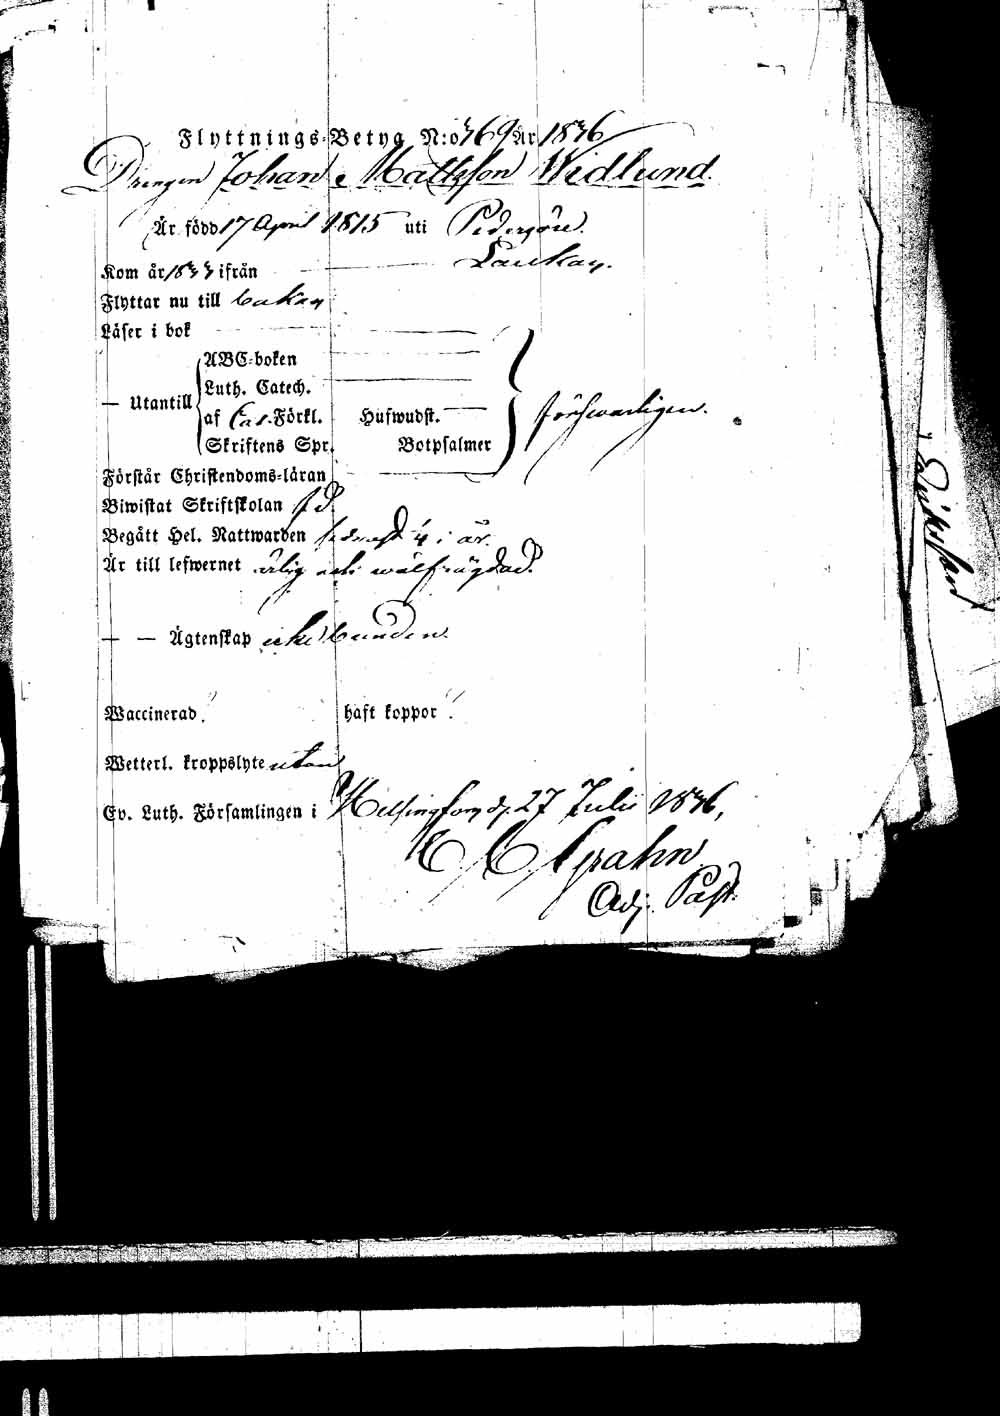 Flyttnings-Betyg N:o 469 År 1846
Drengen Johan Mattsson Widlund
Är född 17 April 1815 uti Pedersöre.
Kom år 1844 ifrån Laukas.
Flyttar nu till
Läser i bok
— Utantill
ABC-boken
Luth. Catech.
af Förkl. Hufwudst. försvarligen.
Skriftens Spr. Botpsalmer
Förstår Christendoms-läran
Biwistat Skriftskolan
Begått Hel. Nattwarden sednast i är.
Är till lefwernet ärlig och wälfrägdad.
— — Ägtenskap icke bunden.
Waccinerad haft koppor
Wetterl. kroppslyte utan
Ev. Luth. Församlingen i Helsingfors d. 27 Julii 1846,
Grahn
Adj. Past.